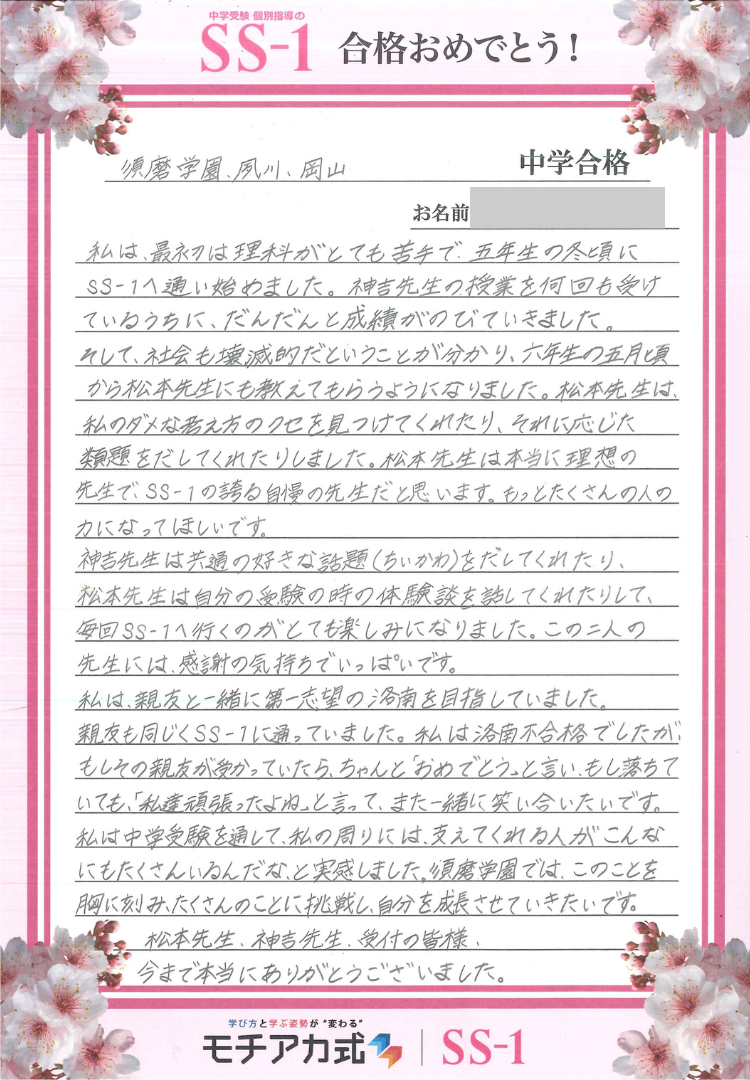 中学受験 個別指導の
SS-1 合格おめでとう!
須磨学園、夙川、岡山 中学合格
お名前
私は、最初は理科がとても苦手で、五年生の冬頃に
SS-1へ通い始めました。神吉先生の授業を何回も受け
ているうちに、だんだんと成績がのびていきました。
そして、社会も壊滅的だということが分かり、六年生の五月頃
から松本先生にも教えてもらうようになりました。松本先生は、
私のダメな考え方のクセを見つけてくれたり、それに応じた
類題をだしてくれたりしました。松本先生は本当に理想の
先生で、SS-1の誇る自慢の先生だと思います。もっとたくさんの人の
力になってほしいです。
神吉先生は共通の好きな話題(ちいかわ)をだしてくれたり、
松本先生は自分の受験の時の体験談を話してくれたりして、
毎回SS-1へ行くのがとても楽しみになりました。この二人の
先生には、感謝の気持ちでいっぱいです。
私は、親友と一緒に第一志望の洛南を目指していました。
親友も同じくSS-1に通っていました。私は洛南不合格でしたが、
もしその親友が受かっていたら、ちゃんと「おめでとう」と言い、もし落ちて
いても、「私達頑張ったよね」と言って、また一緒に笑い合いたいです。
私は中学受験を通して、私の周りには、支えてくれる人がこんな
にもたくさんいるんだな、と実感しました。須磨学園では、このことを
胸に刻み、たくさんのことに挑戦し、自分を成長させていきたいです。
松本先生、神吉先生、受付の皆様、
今まで本当にありがとうございました。
学び方と学ぶ姿勢が"変わる"
モチアカ式 SS-1